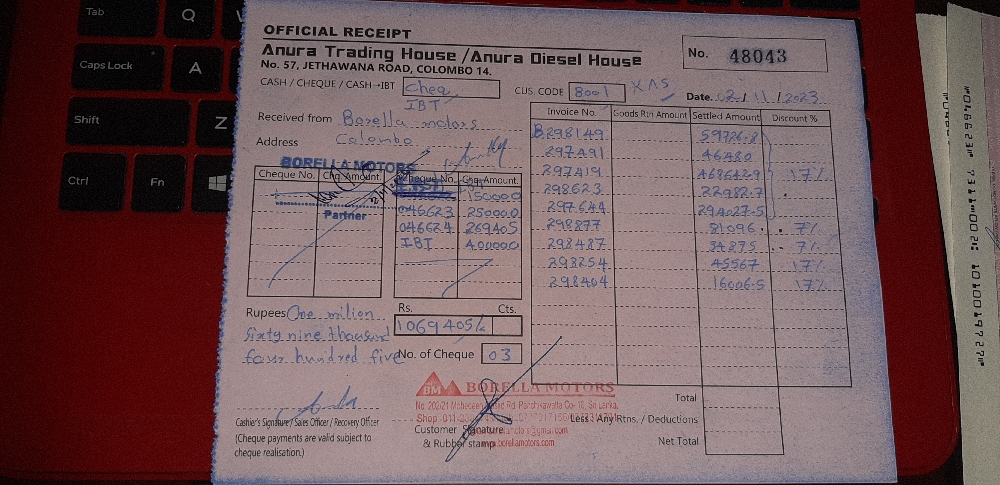 Tab
Q
Caps Lock
A
Shift
Z
Ctrl
Fn
OFFICIAL RECEIPT
Anura Trading House /Anura Diesel House
No. 57, JETHAWANA ROAD, COLOMBO 14.
No. 48043
CASH / CHEQUE / CASH→IBT Cheq
IBT
CUS. CODE 8001
Date. 02/11/2023
Received from Borella motors
Address Colombo
BORELLA MOTORS
Partner
Cheque No. Chq Amount Cheque No. Chq Amount
150000
046623 250000
046624 269405
IBT 400000
Invoice No. Goods Rtn Amount Settled Amount Discount %
B298149 59726.8
297491 46480
297419 468642.9 17%
298623 22982.7
297644 294027.5
298877 81096 7%
298487 34875 7%
298254 45567 17%
298404 16006.5 17%
Rupees One milion
sixty nine thousand
four hundred five
Rs. Cts.
1069405/
No. of Cheque 03
BM BORELLA MOTORS
Cashier's Signature / Sales Officer / Recovery Officer
(Cheque payments are valid subject to
cheque realisation.)
Customer Signature
& Rubber stamp
www.borellamotors.com
Total
Less : Any Rtns. / Deductions
Net Total